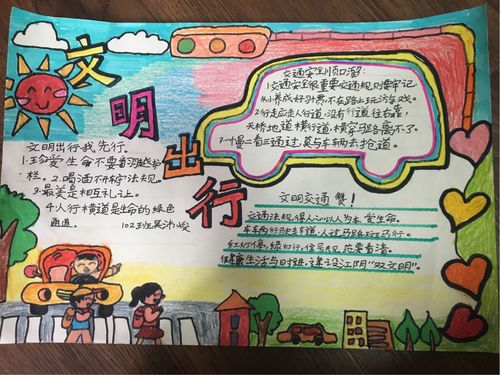 文明出行
文明出行我先行.
1.珍爱生命不要翻越护
栏。2.喝酒不开车守法规。
3.最美是相互礼让。
4.人行横道是生命的绿色
通道。 102班吴
交通安全顺口溜:
1.交通安全很重要交通规则要牢记
从小养成好习惯不在路上玩游戏。
2.行走应走人行道,没有行道往右靠,
天桥地道横行道,横穿马路离不了。
3.一慢二看三通过,莫与车辆去抢道。
文明交通餐!
交通法规得人心以人为本爱生命。
车车两行 人过马路
红灯停,绿灯行,信号灯,您要看清
健康生活与时进,建设江阴"双文明"。